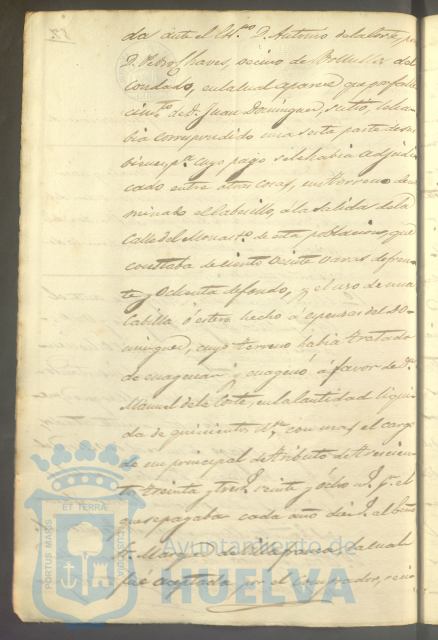 da ante el Es.no D. Antonio de la Corte, por
D. Pedro Chaves, vecino de Bollullos del
Condado, en la cual aparece que por falle
cim.to de D. Juan Dominguez, su tio, le ha
bia correspondido una sesta parte de sus
bienes, p.a cuyo pago se le habia adjudi
cado entre otras cosas, un terreno deno
minado el Cabecillo, á la salida de la
Calle del Monast.o de esta poblacion, que
constaba de ciento varas de fren
te y ochenta de fondo, y el uso de una
ó estero hecho á espensas del Do
minguez, cuyo terreno habia tratado
de enagenar y enagenó á favor de D.
Manuel de la Corte, en la cantidad liqui
da de quinientos r.s con mas el cargo
de un principal de tributo de trescien
tos treinta y tres r.s veinte y ocho
que se pagaba cada año diez r.s al
Marq.s de Villafranca, la cual
fué aceptada por el comprador,
PORTUS MARIS ET TERRAE CUSTODIA
Ayuntamiento de
HUELVA